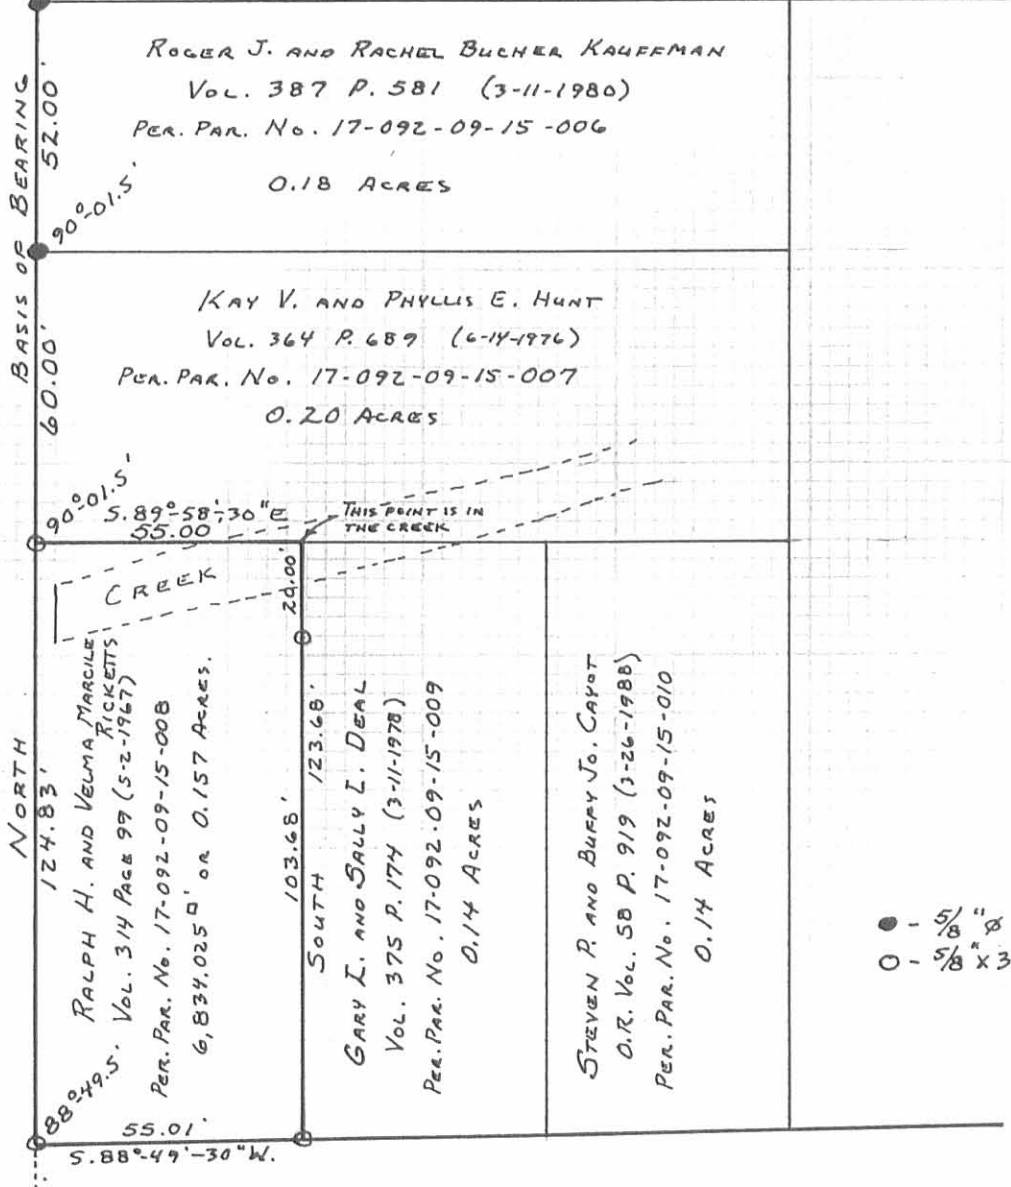 ROGER J. AND RACHEL BUCHER KAUFFMAN
VOL. 387 P. 581 (3-11-1980)
PER. PAR. NO. 17-092-09-15-006
0.18 ACRES
BASIS OF BEARING
52.00'
90°-01.5'
KAY V. AND PHYLLIS E. HUNT
VOL. 364 P. 689 (6-14-1976)
PER. PAR. NO. 17-092-09-15-007
0.20 ACRES
60.00'
90°-01.5'
S.89°-58'-30"E
55.00
THIS POINT IS IN
THE CREEK
CREEK
20.00'
NORTH
124.83'
RALPH H. AND VELMA MARCILE
RICKETTS
VOL. 314 PAGE 99 (5-2-1967)
PER. PAR. NO. 17-092-09-15-008
6,834.025 □' OR 0.157 ACRES.
103.68'
SOUTH 123.68'
GARY L. AND SALLY L. DEAL
VOL. 375 P. 174 (3-11-1978)
PER. PAR. NO. 17-092-09-15-009
0.14 ACRES
STEVEN P. AND BUFFY JO. CAYOT
O.R. VOL. 58 P. 919 (3-26-1988)
PER. PAR. NO. 17-092-09-15-010
0.14 ACRES
● - 5/8"ø
○ - 5/8"x3
88°-49.5'
55.01'
S.88°-49'-30"W.